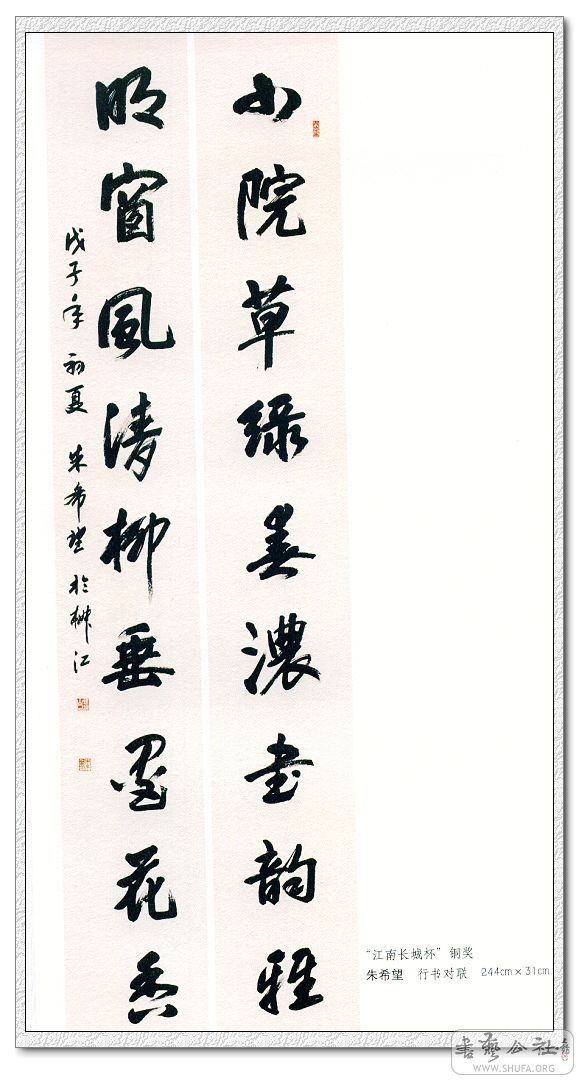 小院草綠春濃書韵雅
明窗風清柳垂墨花香
戊子年初夏 朱希望於椒江
“江南长城杯”铜奖
朱希望 行书对联 244cm×31cm
書藝公社
WWW.SHUFA.ORG